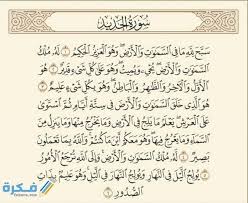 سُورَةُ الحَدِيدِ
سَبَّحَ لِلَّهِ مَا فِي السَّمَٰوَٰتِ وَالْأَرْضِ وَهُوَ الْعَزِيزُ الْحَكِيمُ ١ لَهُ مُلْكُ
السَّمَٰوَٰتِ وَالْأَرْضِ يُحْيِۦ وَيُمِيتُ وَهُوَ عَلَىٰ كُلِّ شَيْءٍ قَدِيرٌ ٢ هُوَ
الْأَوَّلُ وَالْآخِرُ وَالظَّٰهِرُ وَالْبَاطِنُ وَهُوَ بِكُلِّ شَيْءٍ عَلِيمٌ ٣
هُوَ الَّذِي خَلَقَ السَّمَٰوَٰتِ وَالْأَرْضَ فِي سِتَّةِ أَيَّامٍ ثُمَّ اسْتَوَىٰ
عَلَى الْعَرْشِ يَعْلَمُ مَا يَلِجُ فِي الْأَرْضِ وَمَا يَخْرُجُ مِنْهَا وَمَا يَنزِلُ مِنَ
السَّمَاءِ وَمَا يَعْرُجُ فِيهَا وَهُوَ مَعَكُمْ أَيْنَ مَا كُنتُمْ وَاللَّهُ بِمَا تَعْمَلُونَ
بَصِيرٌ ٤ لَّهُ مُلْكُ السَّمَٰوَٰتِ وَالْأَرْضِ وَإِلَى اللَّهِ تُرْجَعُ الْأُمُورُ ٥
يُولِجُ الَّيْلَ فِي النَّهَارِ وَيُولِجُ النَّهَارَ فِي الَّيْلِ وَهُوَ عَلِيمٌ بِذَاتِ
الصُّدُورِ ٦
فكرة